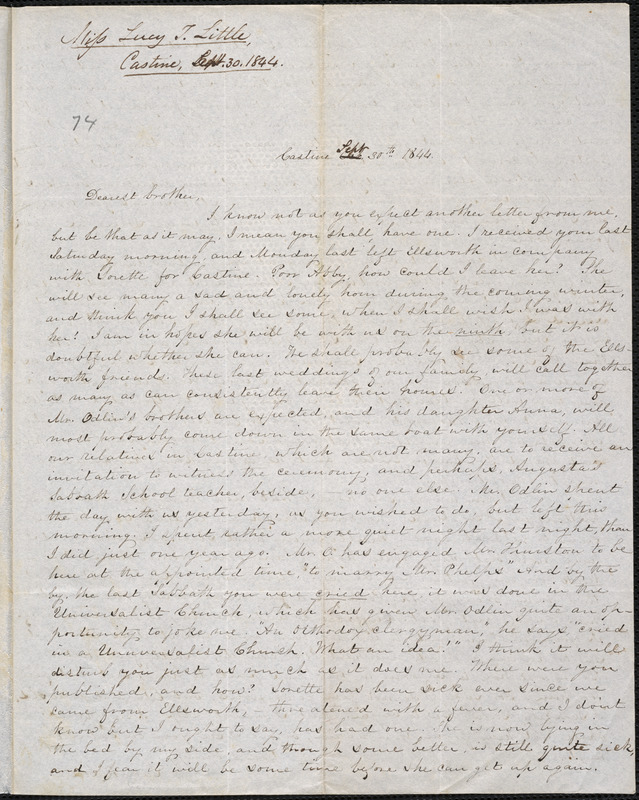 Miss Lucy T. Little,
Castine, Sept. 30. 1844.
74
Castine Sept 30th 1844.
Dearest brother,
I know not as you expect another letter from me,
but be that as it may, I mean you shall have one. I received your last
Saturday morning, and Monday last left Ellsworth in company
with Lorette for Castine. Poor Abby, how could I leave her? She
will see many a sad and lonely hour during the coming winter,
and think you I shall see some, when I shall wish I was with
her! I am in hopes she will be with us on the ninth, but it is
doubtful whether she can. We shall probably see some of the Ells-
worth friends. These last weddings of our family, will call together
as many as can consistently leave their homes. One or more of
Mr. Odlin's brothers are expected, and his daughter Anna, will
most probably come down in the same boat with yourself. All
our relatives in Castine, which are not many, are to receive an
invitation to witness the ceremony, and perhaps, Augusta's
Sabbath School teacher, beside, – no one else. Mr. Odlin spent
the day with us yesterday, as you wished to do, but left this
morning. I spent rather a more quiet night last night, than
I did just one year ago. Mr. O has engaged Mr. Thurston to be
here at the appointed time, "to marry Mr. Phelps" And by the
by, the last Sabbath you were cried here, it was done in the
Universalist Church, which has given Mr. Odlin quite an op-
portunity to joke me. "An Orthodox clergyman", he says, "cried
in a Universalist Church. What an idea!" I think it will
disturb you just as much as it does me. Where were you
published, and how? Lorette has been sick ever since we
came from Ellsworth, – threatened with a fever, and I don't
know but I ought to say, has had one. She is now lying in
the bed by my side and though some better, is still quite sick,
and I fear it will be some time before she can get up again.